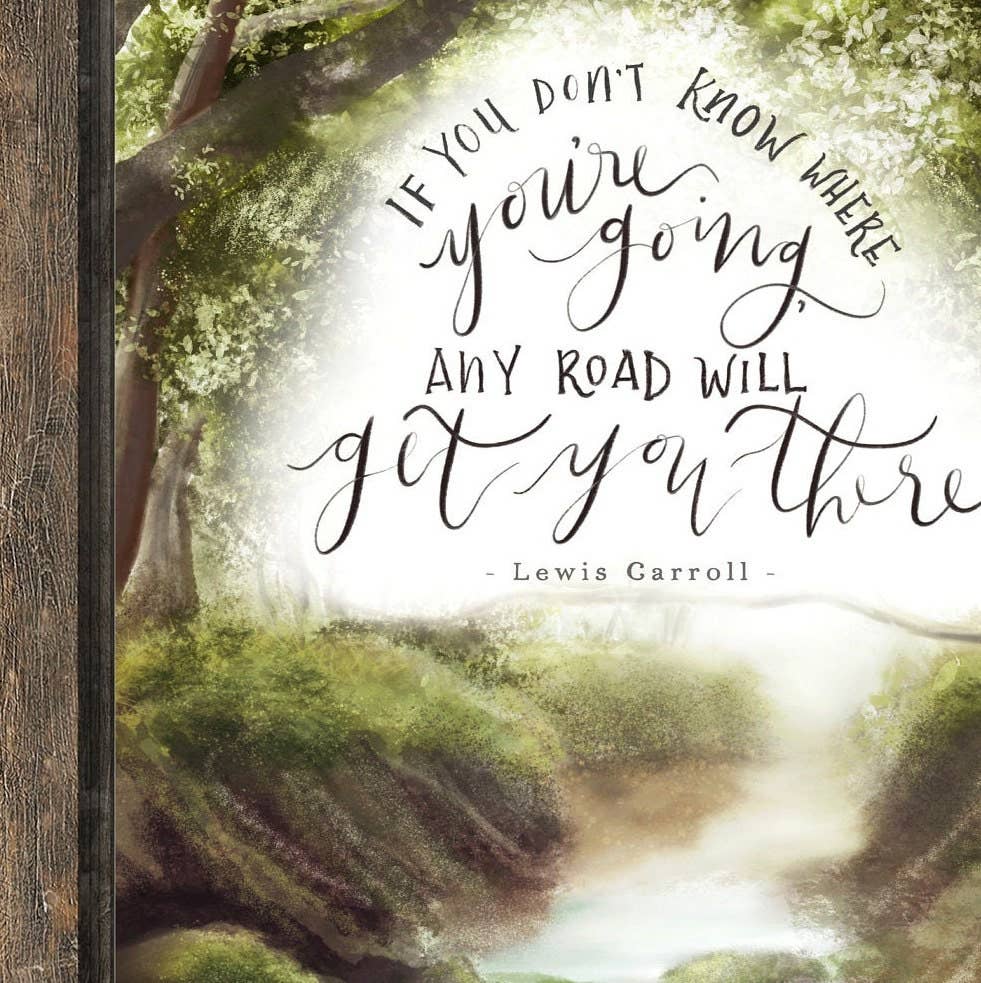 IF YOU DON'T KNOW WHERE
you're going,
ANY ROAD WILL
get you there
- Lewis Carroll -